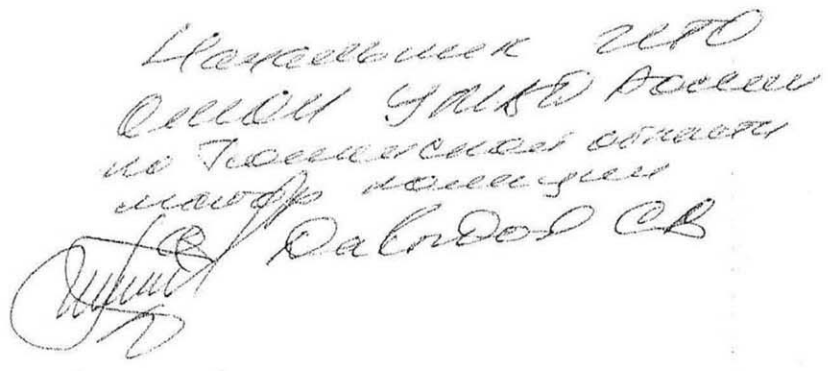 Начальник
ОМОН УМВД России
по Тюменской области
майор полиции
Давыдов СВ